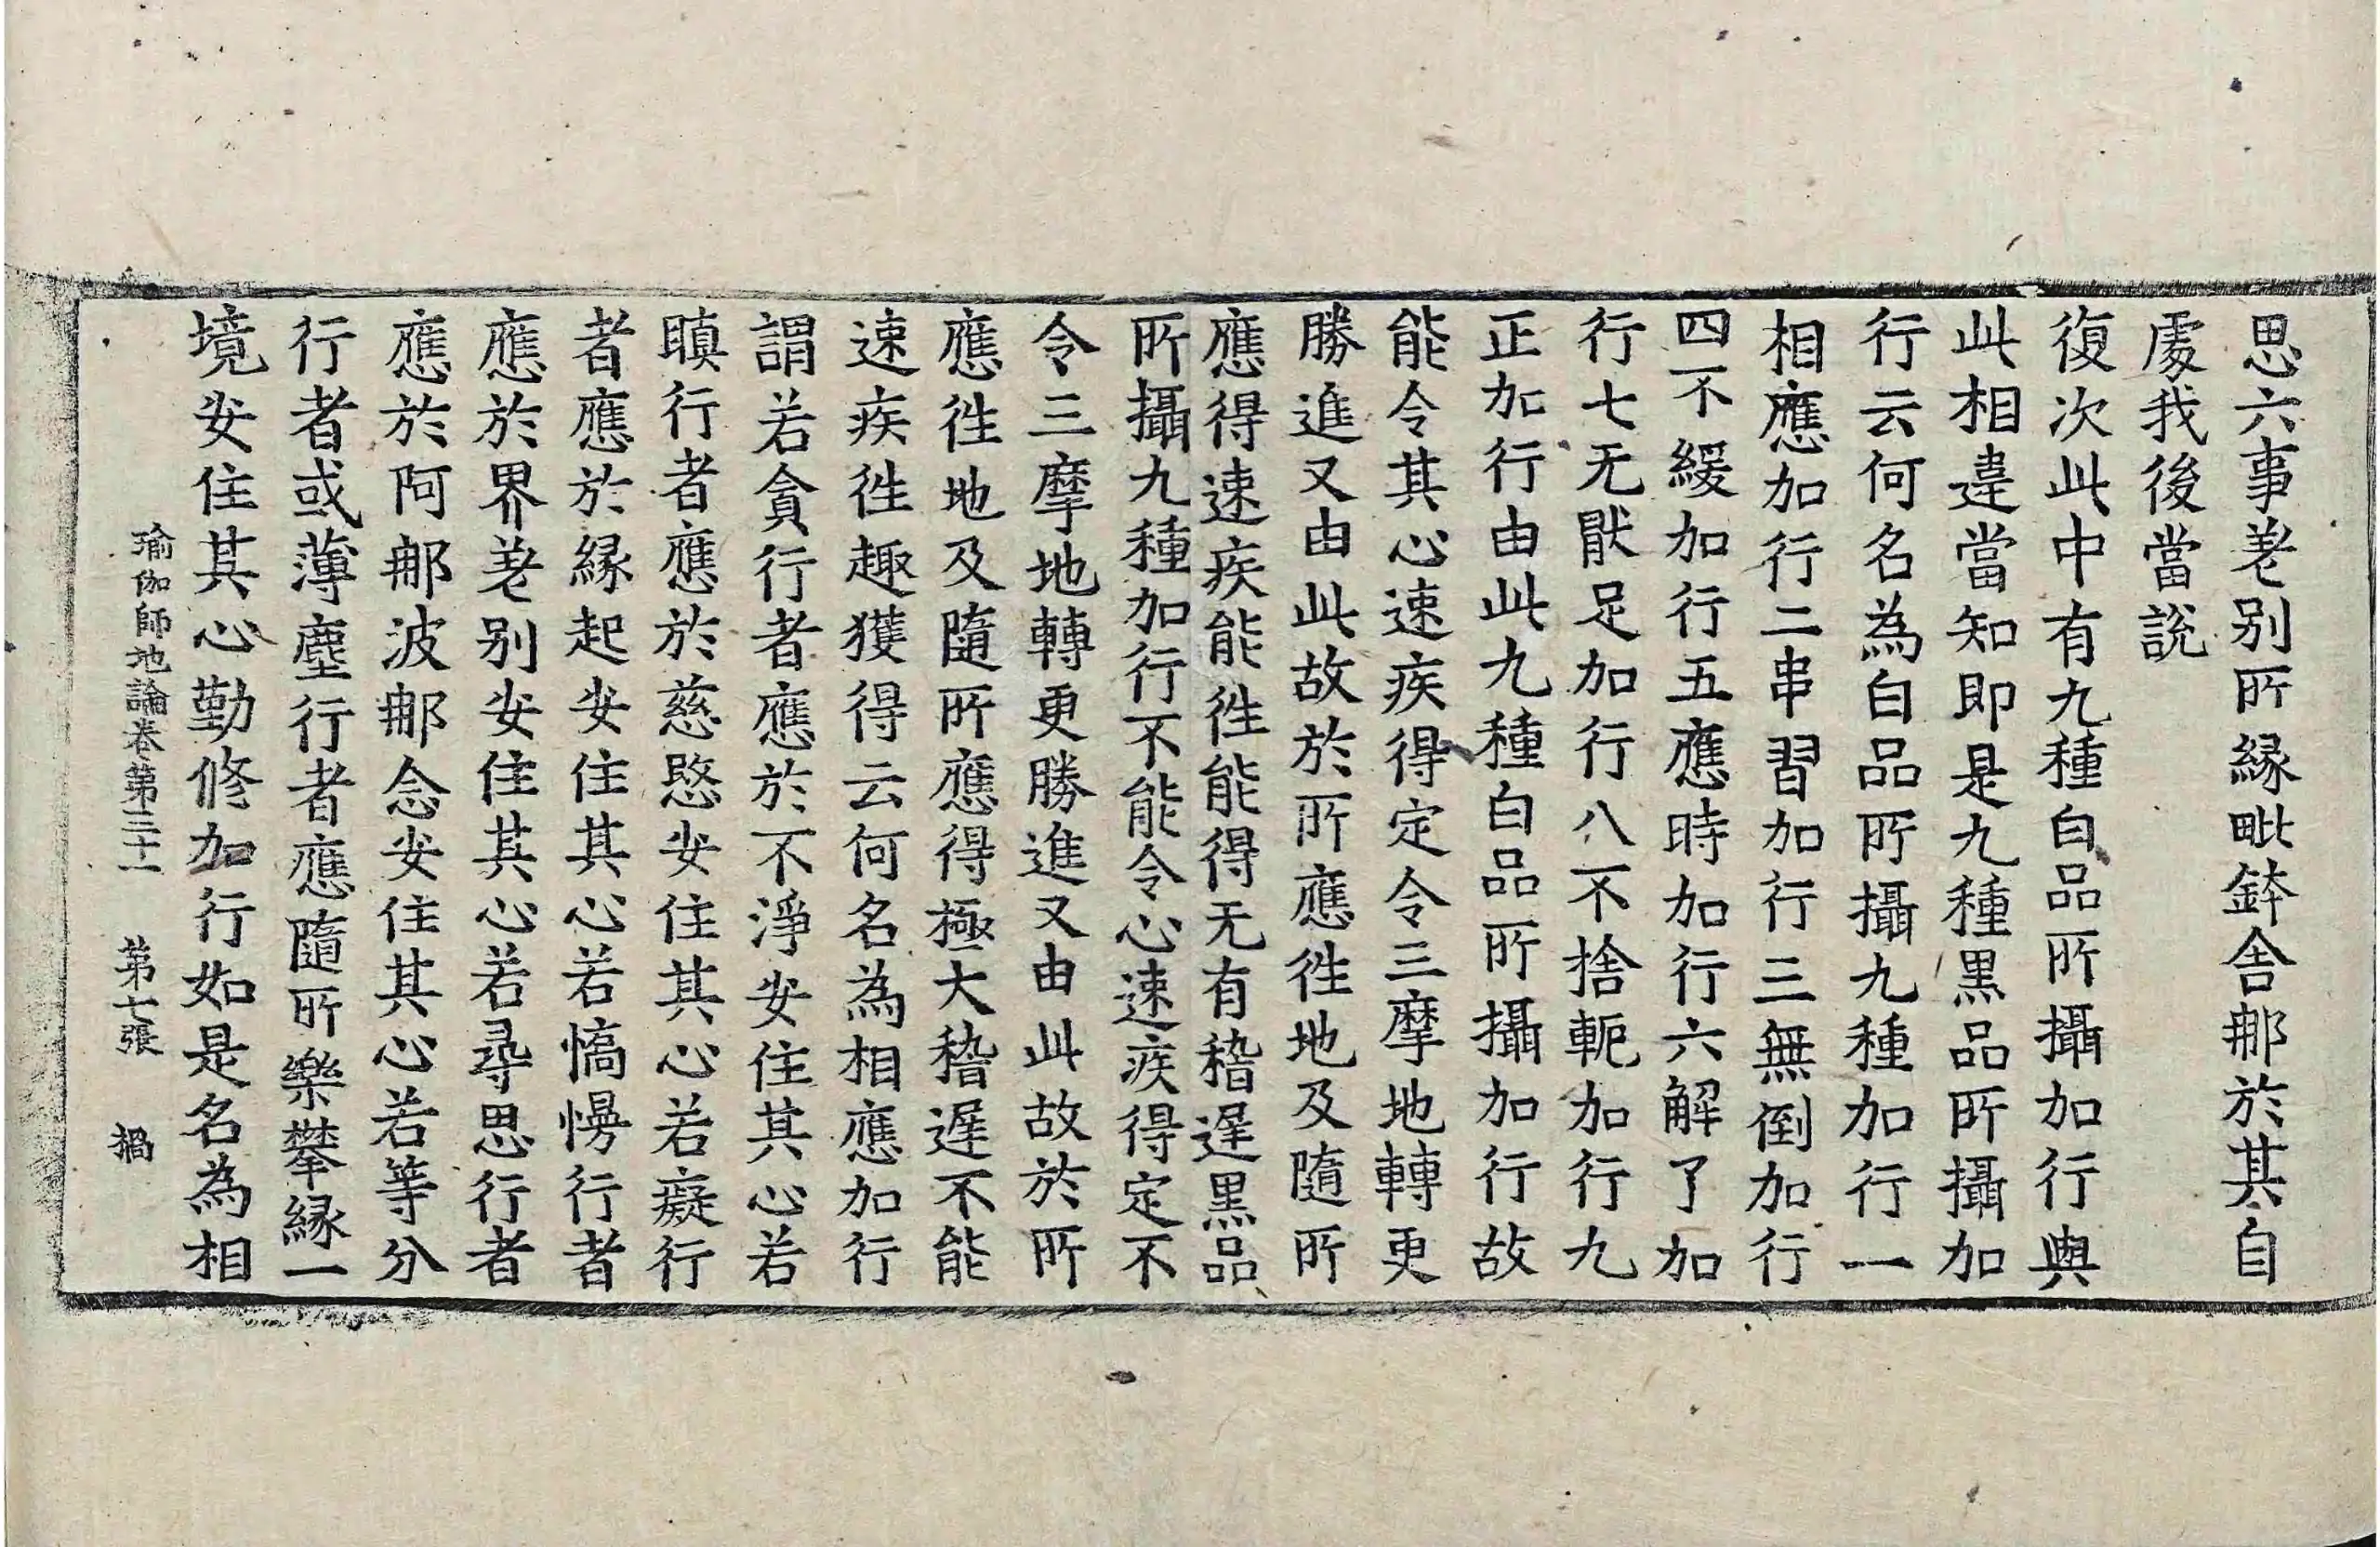 思六事差別所緣毗鉢舍那於其自
處我後當說
復次此中有九種白品所攝加行與
此相違當知即是九種黑品所攝加
行云何名為白品所攝九種加行一
相應加行二串習加行三無倒加行
四不緩加行五應時加行六解了加
行七无猒足加行八不捨軛加行九
正加行由此九種白品所攝加行故
能令其心速疾得定令三摩地轉更
勝進又由此故於所應往地及隨所
應得速疾能往能得无有稽遲黑品
所攝九種加行不能令心速疾得定不
令三摩地轉更勝進又由此故於所
應往地及隨所應得極大稽遲不能
速疾往趣獲得云何名為相應加行
謂若貪行者應於不淨安住其心若
瞋行者應於慈愍安住其心若癡行
者應於緣起安住其心若憍慢行者
應於界差別安住其心若尋思行者
應於阿那波那念安住其心若等分
行者或薄塵行者應隨所樂攀緣一
境安住其心勤修加行如是名為相
瑜伽師地論卷第三十一　第七張　禍